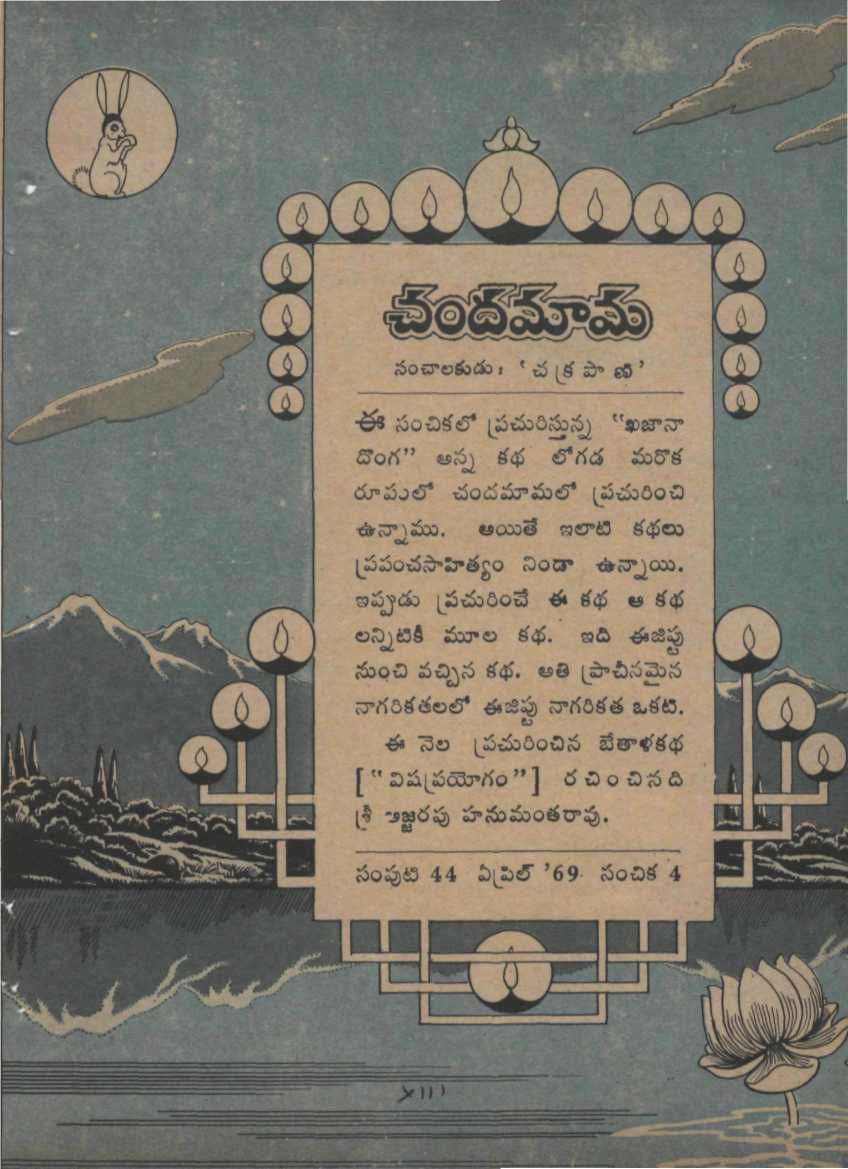 చందమామ
సంచాలకుడు: 'చక్రపాణి'
ఈ సంచికలో ప్రచురిస్తున్న "ఖజానా
దొంగ" అన్న కథ లోగడ మరొక
రూపులో చందమామలో ప్రచురించి
ఉన్నాము. అయితే ఇలాటి కథలు
ప్రపంచసాహిత్యం నిండా ఉన్నాయి.
ఇప్పుడు ప్రచురించే ఈ కథ ఆ కథ
లన్నిటికీ మూల కథ. ఇది ఈజిప్టు
నుంచి వచ్చిన కథ. అతి ప్రాచీనమైన
నాగరికతలలో ఈజిప్టు నాగరికత ఒకటి.
ఈ నెల ప్రచురించిన బేతాళకథ
["విషప్రయోగం"] రచించినది
శ్రీ అజ్జరపు హనుమంతరావు.
సంపుటి 44 ఏప్రిల్ '69 సంచిక 4
XIII